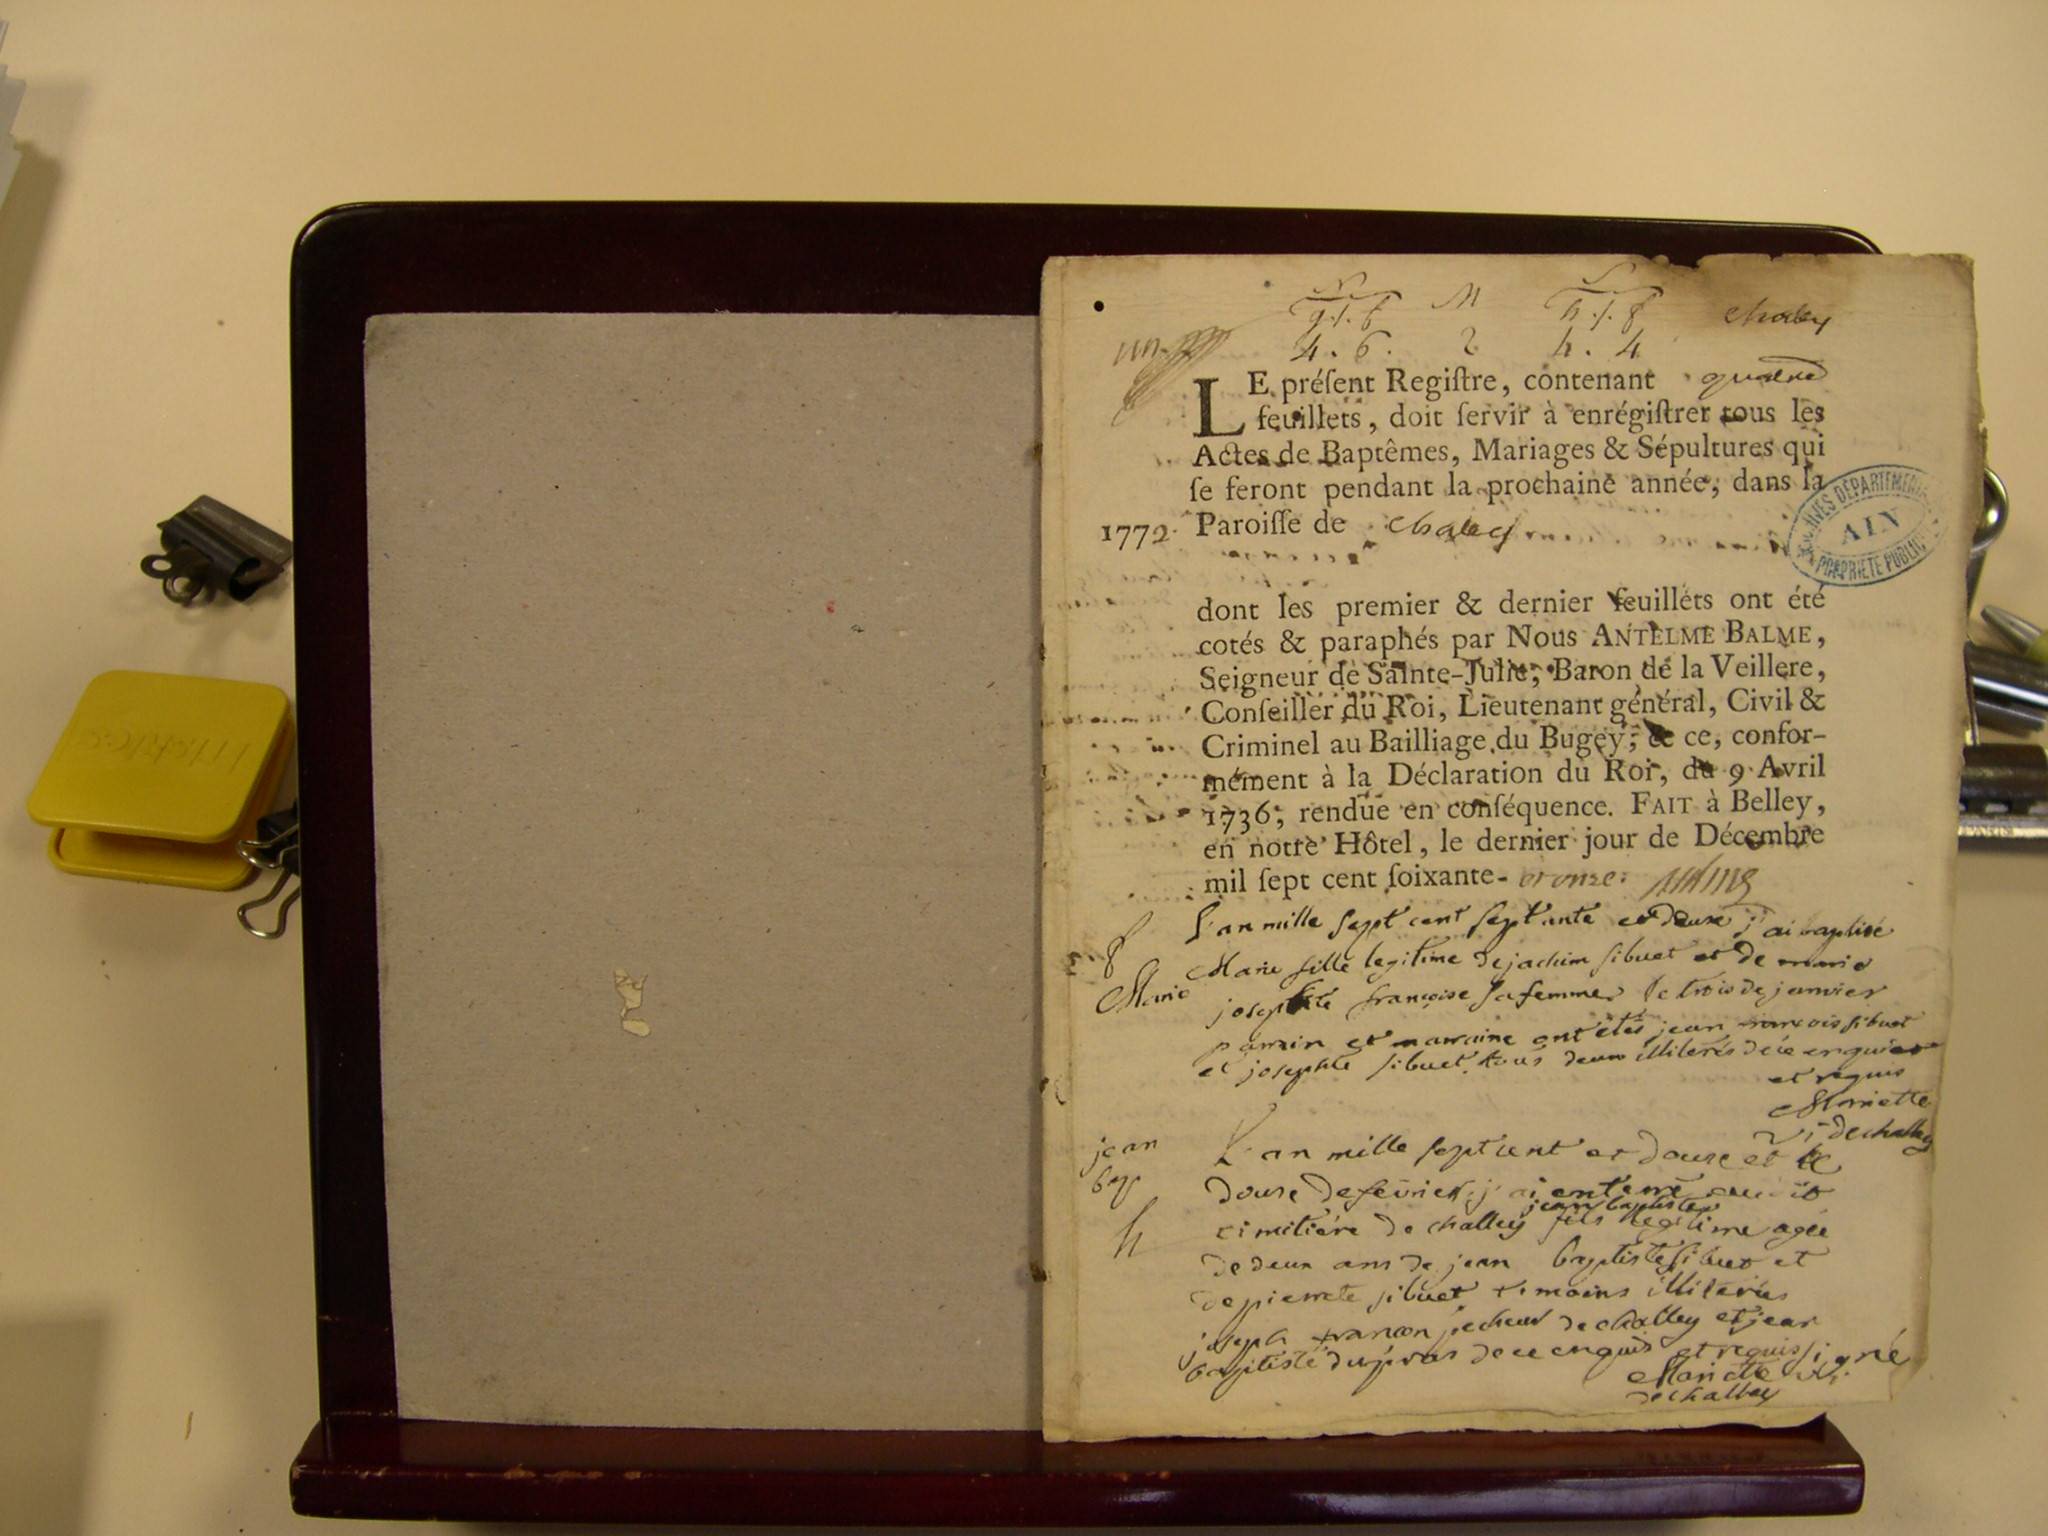 N M S
g. f. h. f. chaley
4. 6. 2 4. 4
LE préſent Regiſtre, contenant quatre
feuillets, doit ſervir à enrégiſtrer tous les
Actes de Baptêmes, Mariages & Sépultures qui
ſe feront pendant la prochaine année, dans la
1772. Paroiſſe de chaley
ARCHIVES DÉPARTEMENTALES
AIN
PROPRIÉTÉ PUBLIQUE
dont les premier & dernier feuillets ont été
cotés & paraphés par Nous ANTELME BALME,
Seigneur de Sainte-Julie, Baron de la Veillere,
Conſeiller du Roi, Lieutenant général, Civil &
Criminel au Bailliage du Bugey; & ce, confor-
mément à la Déclaration du Roi, du 9 Avril
1736; rendue en conſéquence. FAIT à Belley,
en notre Hôtel, le dernier jour de Décembre
mil ſept cent ſoixante-et onze.
f
Marie
L'an mille sept cent septante et deuxe j'ai baptisé
Marie fille legitime de jachim sibuet et de marie
josephte françoise sa femme le trois de janvier
parrin et marraine ont etés jean francois sibuet
et josephte sibuet tous deux illiterés de ce enquis
et requis
Mariette
de challey
jean
bap
h
L'an mille sept cent et douze et le
douze de fevrier j'ai enterré
jean baptiste
cimitière de challey fils legitime agée
de deux ans de jean baptiste sibuet et
de pierrete sibuet temoins illiterés
joseph francon pecheur de challey et jean
baptiste dupras de ce enquis et requis signé
Mariette
de challey